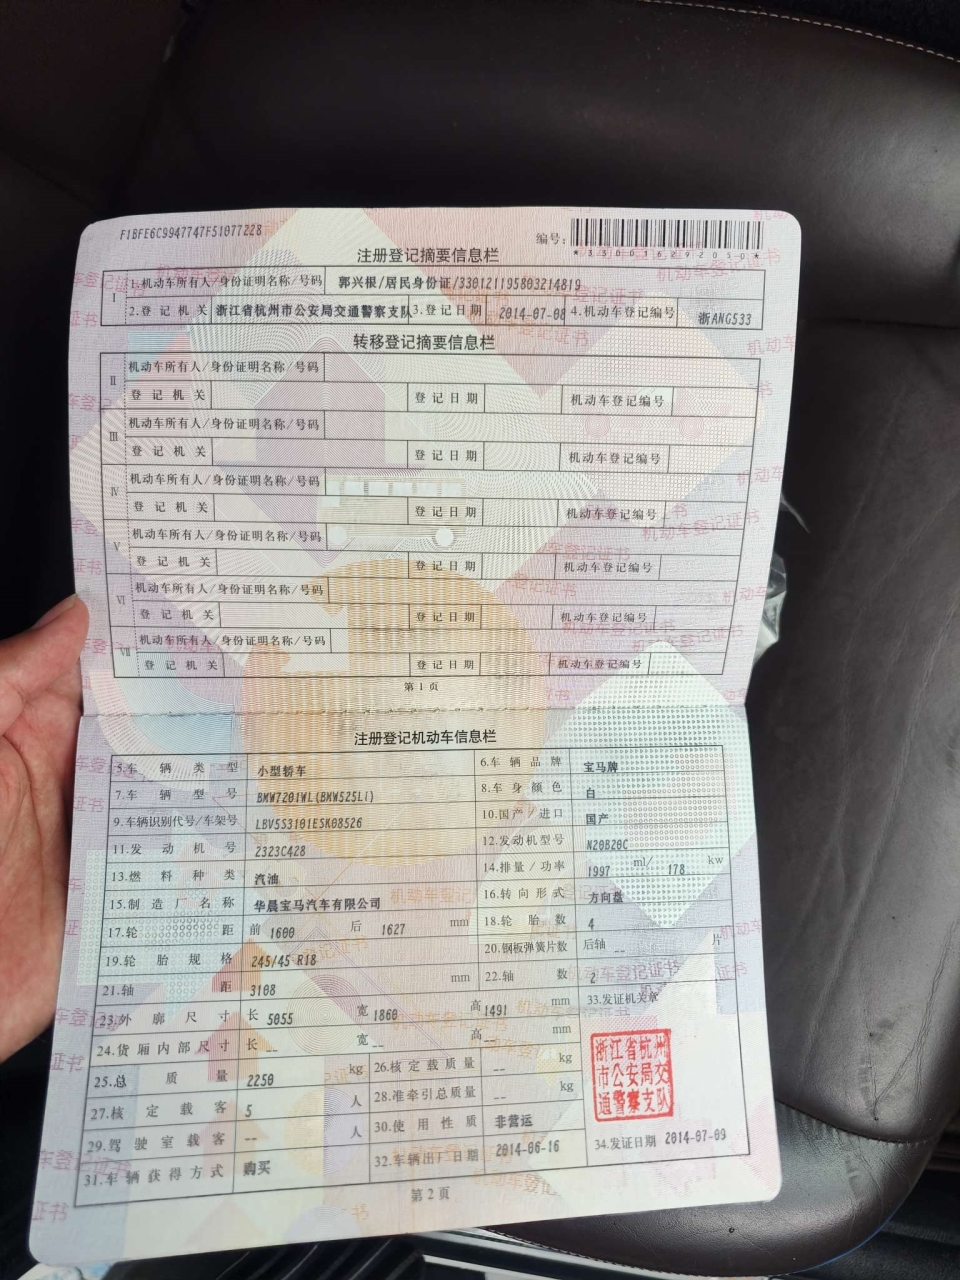 F1BFE6C9947747F51077228
编号:
*330016292050*
注册登记摘要信息栏
I 1.机动车所有人/身份证明名称/号码 郭兴根/居民身份证/330121195803214819
2.登记机关 浙江省杭州市公安局交通警察支队 3.登记日期 2014-07-08 4.机动车登记编号 浙ANG533
转移登记摘要信息栏
II 机动车所有人/身份证明名称/号码
登记机关 登记日期 机动车登记编号
III 机动车所有人/身份证明名称/号码
登记机关 登记日期 机动车登记编号
IV 机动车所有人/身份证明名称/号码
登记机关 登记日期 机动车登记编号
V 机动车所有人/身份证明名称/号码
登记机关 登记日期 机动车登记编号
VI 机动车所有人/身份证明名称/号码
登记机关 登记日期 机动车登记编号
VII 机动车所有人/身份证明名称/号码
登记机关 登记日期 机动车登记编号
第1页
注册登记机动车信息栏
5.车辆类型 小型轿车 6.车辆品牌 宝马牌
7.车辆型号 BMW7201WL(BMW525Li) 8.车身颜色 白
9.车辆识别代号/车架号 LBV5S3101ESK08526 10.国产/进口 国产
11.发动机号 2323C428 12.发动机型号 N20B20C
13.燃料种类 汽油 14.排量/功率 1997 ml/ 178 kw
15.制造厂名称 华晨宝马汽车有限公司 16.转向形式 方向盘
17.轮距 前 1600 后 1627 mm 18.轮胎数 4
19.轮胎规格 245/45 R18 20.钢板弹簧片数 后轴 -- 片
21.轴距 3108 mm 22.轴数 2
23.外廓尺寸 长 5055 宽 1860 高 1491 mm 33.发证机关章
24.货厢内部尺寸 长 -- 宽 -- 高 -- mm
25.总质量 2250 kg 26.核定载质量 -- kg
27.核定载客 5 人 28.准牵引总质量 -- kg
29.驾驶室载客 -- 人 30.使用性质 非营运
31.车辆获得方式 购买 32.车辆出厂日期 2014-06-16 34.发证日期 2014-07-09
浙江省杭州
市公安局交
通警察支队
第2页